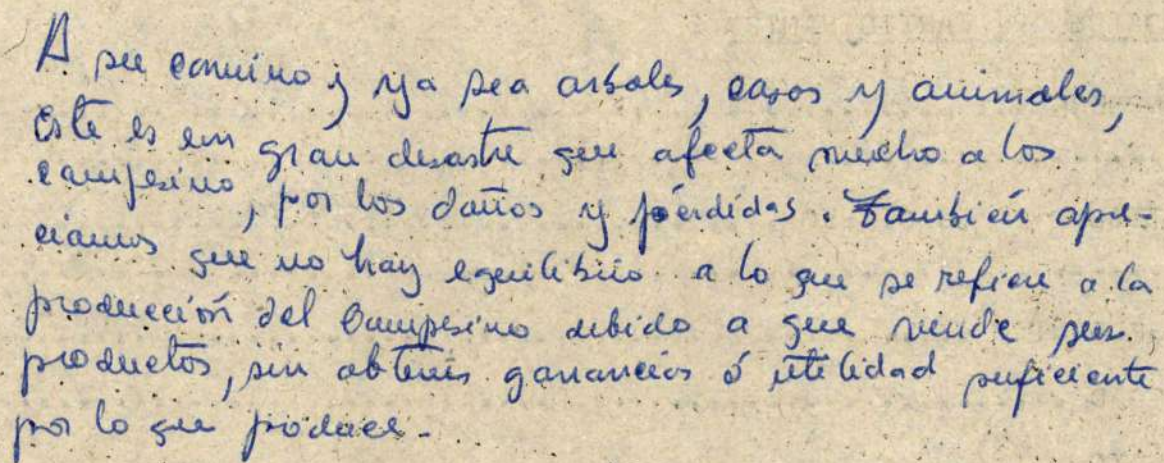 A su camino y ya sea arboles, casas y animales,
Este es un gran desastre que afecta mucho a los
campesino, por los daños y pérdidas. También apre-
ciamos que no hay equilibrio a lo que se refiere a la
producción del Campesino debido a que vende sus
productos, sin obtener ganancias ó utilidad suficiente
por lo que produce.